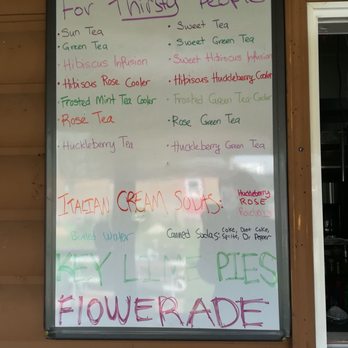 For Thirsty People
• Sun Tea
• Green Tea
• Hibiscus Infusion
• Hibiscus Rose Cooler
• Frosted Mint Tea Cooler
• Rose Tea
• Huckleberry Tea
• Sweet Tea
• Sweet Green Tea
• Sweet Hibiscus Infusion
• Hibiscus Huckleberry Cooler
• Frosted Green Tea Cooler
• Rose Green Tea
• Huckleberry Green Tea
ITALIAN CREAM SODAS:
Huckleberry
ROSE
Bottled Water
Canned Sodas: Coke, Diet Coke,
Sprite, Dr Pepper
KEY LIME PIES
FLOWERADE